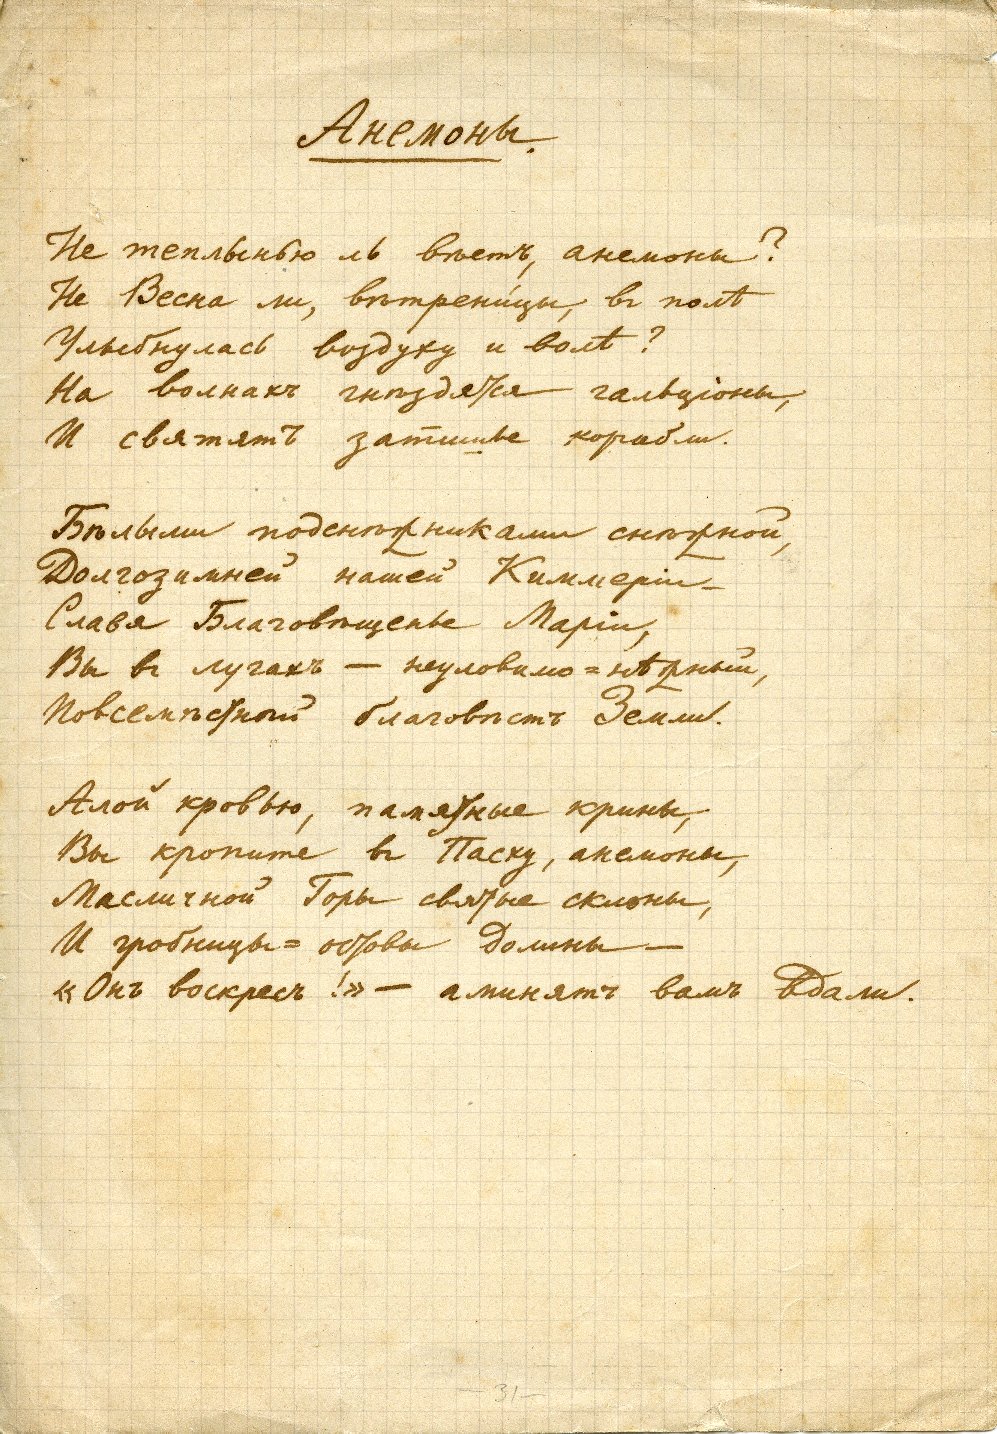 Анемоны.
Не теплынью ль вѣетъ, анемоны?
Не Весна ли, вѣтрени́цы, въ полѣ
Улыбнулась воздуху и волѣ?
На волнахъ гнѣздятся гальціоны,
И святятъ затишье корабли.
Бѣлыми подснѣжниками снѣжной,
Долгозимней нашей Киммеріи –
Славя Благовѣщенье Маріи,
Вы въ лугахъ — неуловимо=нѣжный,
Повсемѣстный благовѣстъ Земли.
Алой кровью, памятные крины,
Вы кропите въ Пасху, анемоны,
Масличной Горы святые склоны,
И гробницы=остовы Долины —
«Онъ воскресъ!» — аминятъ вамъ Вдали.
– 31 –